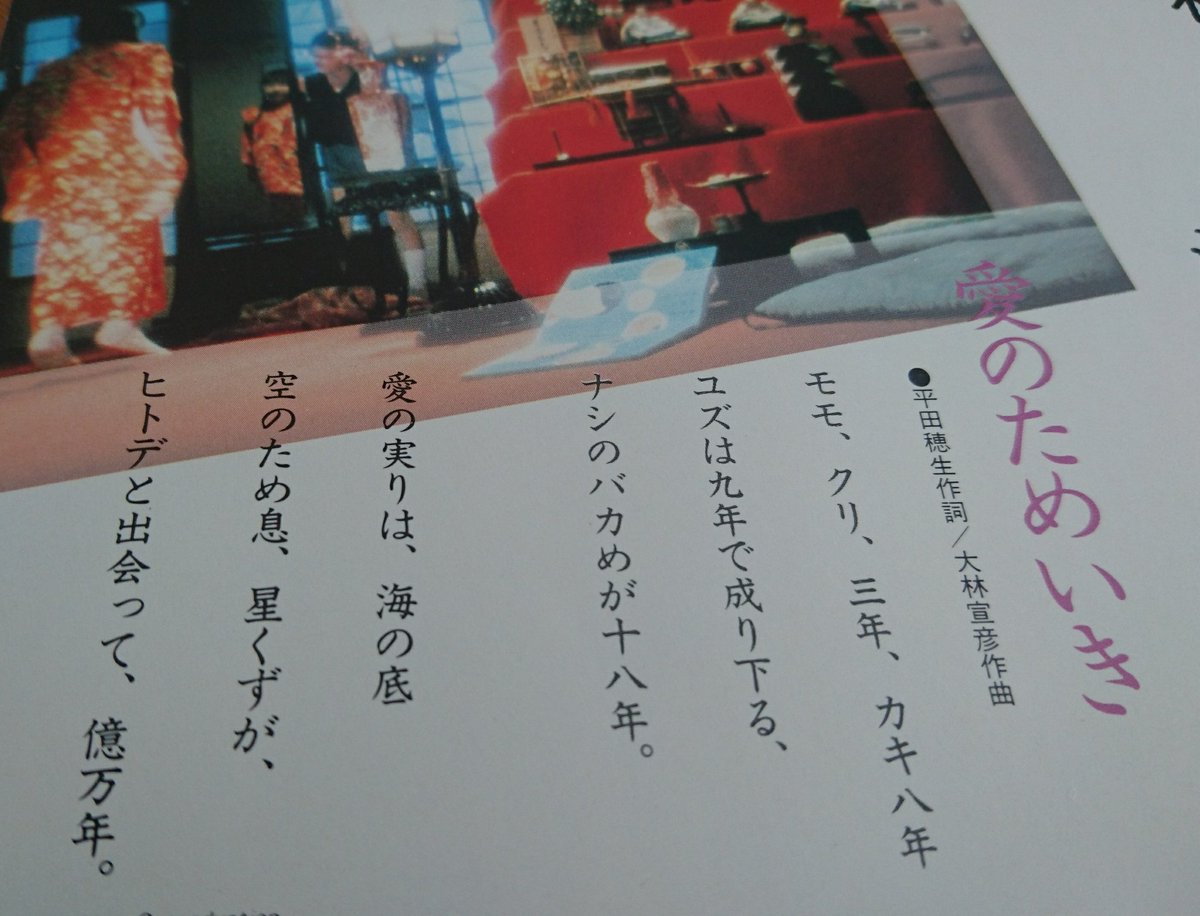 愛のためいき
●平田穂生作詞／大林宣彦作曲
モモ、クリ、三年、カキ八年
ユズは九年で成り下る、
ナシのバカめが十八年。
愛の実りは、海の底
空のため息、星くずが、
ヒトデと出会って、億万年。